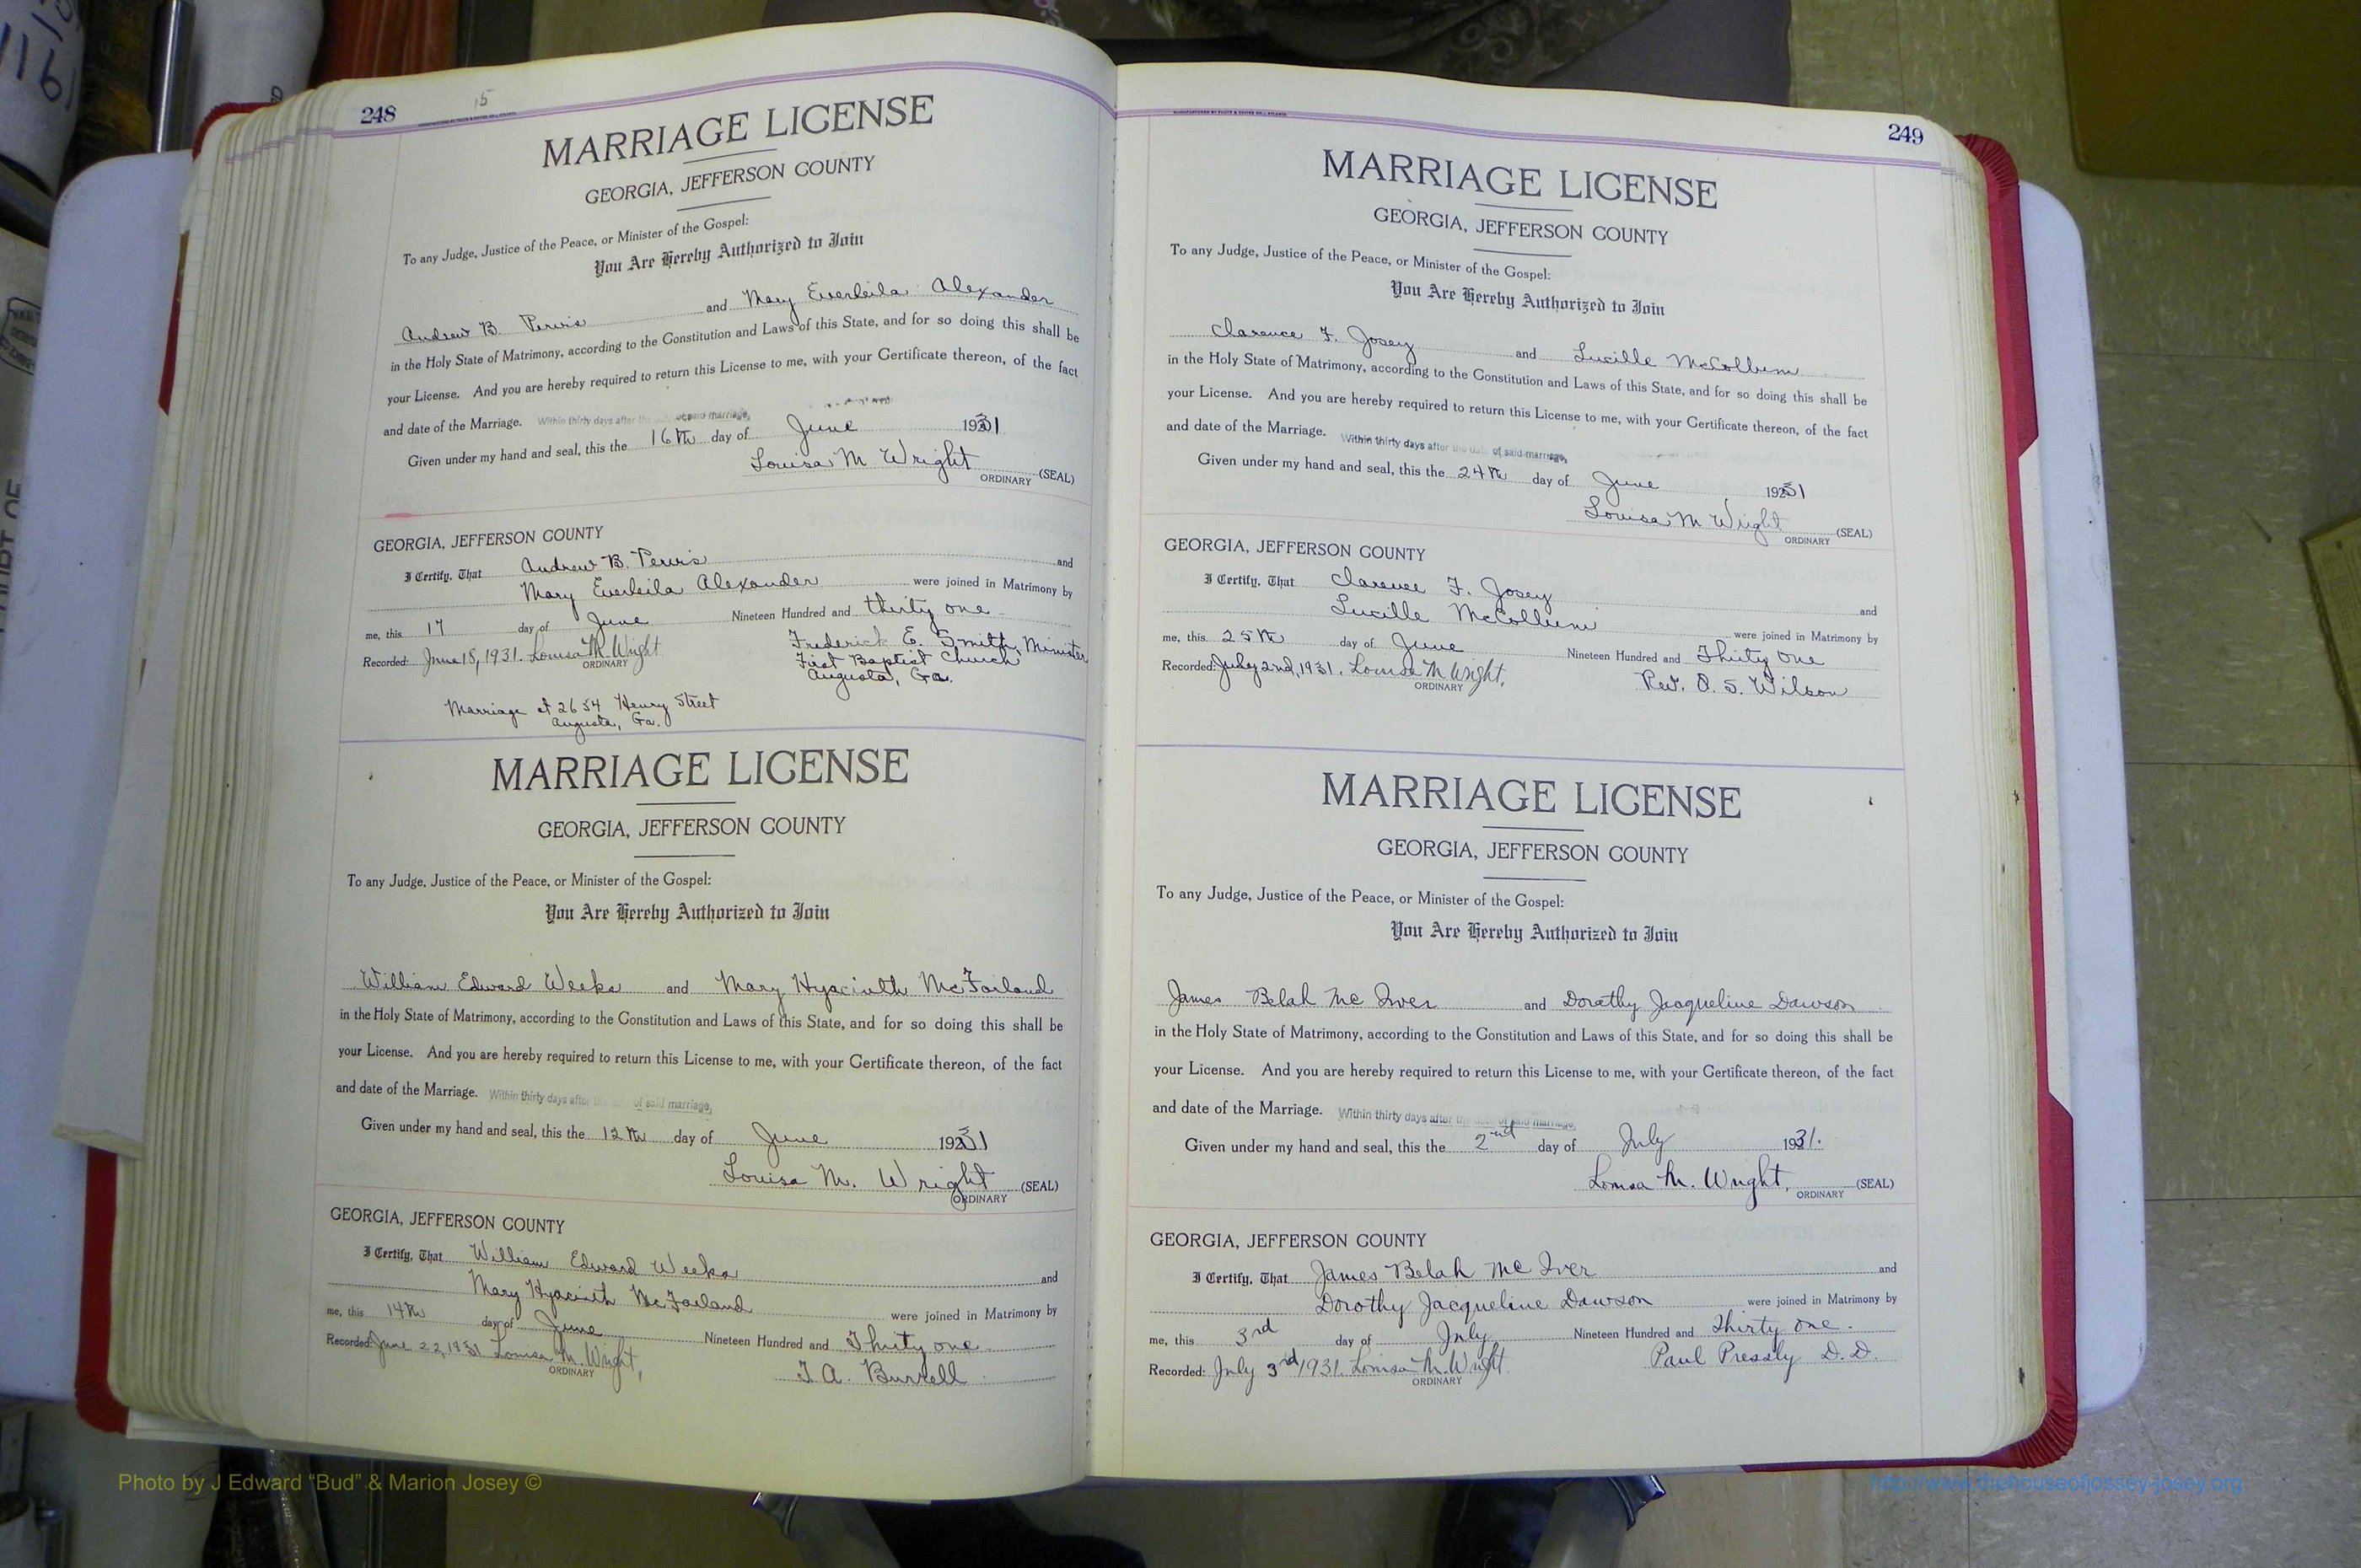 248
15
MARRIAGE LICENSE
GEORGIA, JEFFERSON COUNTY
To any Judge, Justice of the Peace, or Minister of the Gospel:
You Are Hereby Authorized to Join
Andrew B. Pervis and Mary Everleila Alexander
in the Holy State of Matrimony, according to the Constitution and Laws of this State, and for so doing this shall be
your License. And you are hereby required to return this License to me, with your Certificate thereon, of the fact
and date of the Marriage. Within thirty days after the of said marriage,
Given under my hand and seal, this the 16th day of June 1931
Louisa M Wright (SEAL)
ORDINARY
GEORGIA, JEFFERSON COUNTY
I Certify, That Andrew B. Pervis and
Mary Everleila Alexander were joined in Matrimony by
me, this 17 day of June Nineteen Hundred and thirty one
Recorded: June 15, 1931. Louisa M. Wright Frederick E. Smith, Minister
ORDINARY First Baptist Church
Augusta, Ga.
Marriage at 2654 Henry Street
Augusta, Ga.
MARRIAGE LICENSE
GEORGIA, JEFFERSON COUNTY
To any Judge, Justice of the Peace, or Minister of the Gospel:
You Are Hereby Authorized to Join
William Edward Weeks and Mary Hyacinth McFarland
in the Holy State of Matrimony, according to the Constitution and Laws of this State, and for so doing this shall be
your License. And you are hereby required to return this License to me, with your Certificate thereon, of the fact
and date of the Marriage. Within thirty days after of said marriage,
Given under my hand and seal, this the 12th day of June 1931
Louisa M. Wright (SEAL)
ORDINARY
GEORGIA, JEFFERSON COUNTY
I Certify, That William Edward Weeks and
Mary Hyacinth McFarland were joined in Matrimony by
me, this 14th day of June Nineteen Hundred and Thirty one
Recorded: June 22, 1931 Louisa M. Wright, T. A. Burrell
ORDINARY
249
MARRIAGE LICENSE
GEORGIA, JEFFERSON COUNTY
To any Judge, Justice of the Peace, or Minister of the Gospel:
You Are Hereby Authorized to Join
Clarence F. Josey and Lucille McCollum
in the Holy State of Matrimony, according to the Constitution and Laws of this State, and for so doing this shall be
your License. And you are hereby required to return this License to me, with your Certificate thereon, of the fact
and date of the Marriage. Within thirty days after the date of said marriage,
Given under my hand and seal, this the 24th day of June 1931
Louisa M Wright (SEAL)
ORDINARY
GEORGIA, JEFFERSON COUNTY
I Certify, That Clarence F. Josey
Lucille McCollum and
were joined in Matrimony by
me, this 25th day of June Nineteen Hundred and Thirty one
Recorded: July 2nd, 1931. Louisa M Wright, Rev. O. S. Wilson
ORDINARY
MARRIAGE LICENSE
GEORGIA, JEFFERSON COUNTY
To any Judge, Justice of the Peace, or Minister of the Gospel:
You Are Hereby Authorized to Join
James Belah Mc Iver and Dorothy Jacqueline Dawson
in the Holy State of Matrimony, according to the Constitution and Laws of this State, and for so doing this shall be
your License. And you are hereby required to return this License to me, with your Certificate thereon, of the fact
and date of the Marriage. Within thirty days after the date of said marriage,
Given under my hand and seal, this the 2nd day of July 1931.
Louisa M. Wright, (SEAL)
ORDINARY
GEORGIA, JEFFERSON COUNTY
I Certify, That James Belah Mc Iver and
Dorothy Jacqueline Dawson were joined in Matrimony by
me, this 3rd day of July Nineteen Hundred and Thirty one.
Recorded: July 3rd 1931. Louisa M. Wright Paul Pressly D.D.
ORDINARY
Photo by J Edward “Bud” & Marion Josey ©
http://www.thehouseofjossey-josey.org